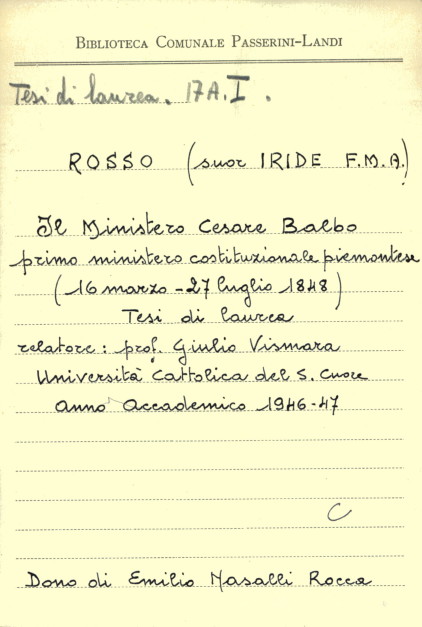 BIBLIOTECA COMUNALE PASSERINI-LANDI
Tesi di laurea. 17A.I.
ROSSO (suor IRIDE F.M.A.)
Il Ministero Cesare Balbo
primo ministero costituzionale piemontese
(16 marzo - 27 luglio 1848)
Tesi di laurea
relatore: prof. Giulio Vismara
Università Cattolica del S. Cuore
Anno Accademico 1946-47
C
Dono di Emilio Nasalli Rocca